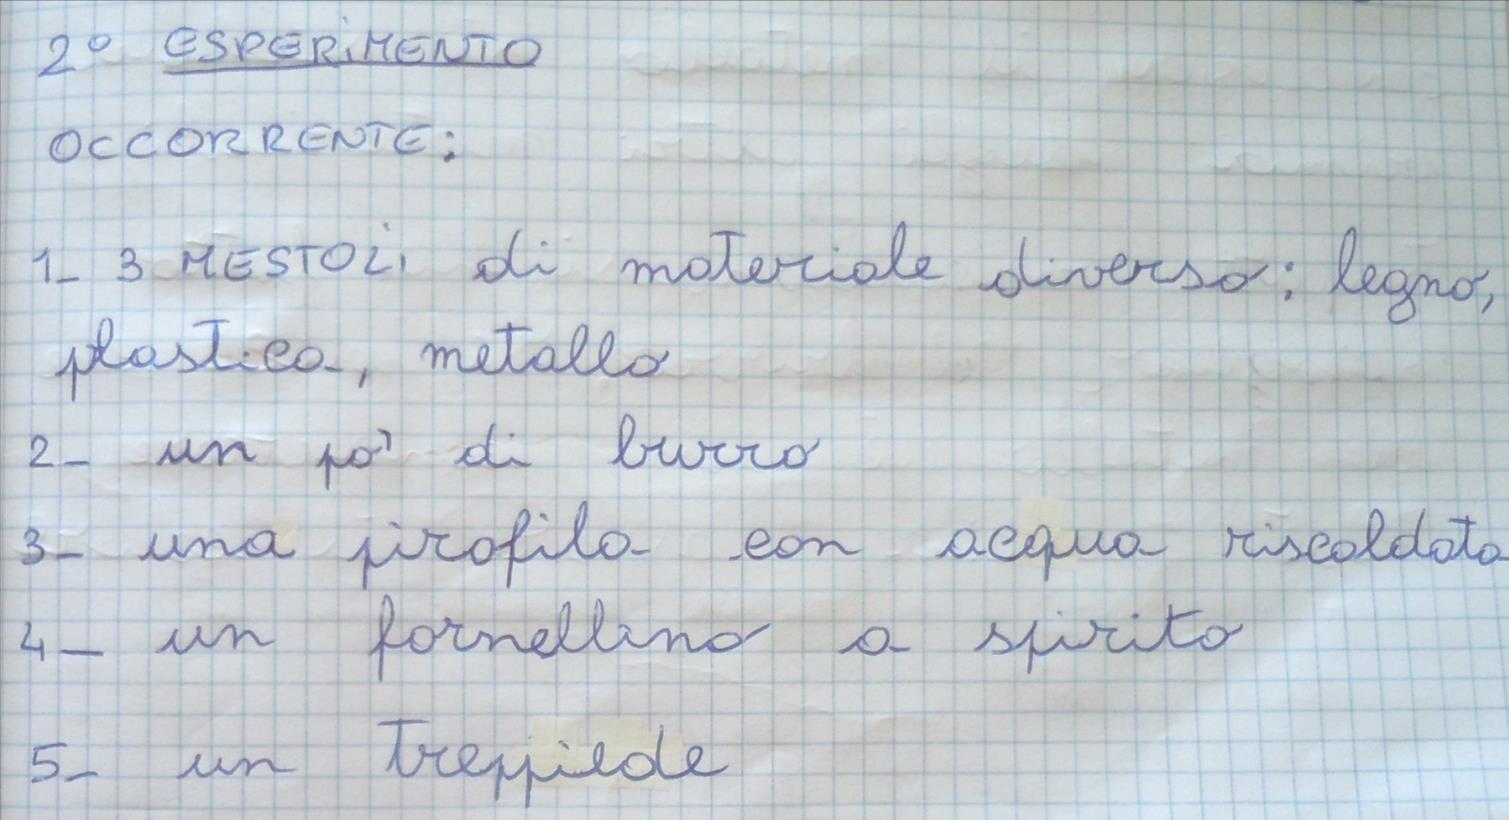 2° ESPERIMENTO
OCCORRENTE:
1_ 3 MESTOLI di materiale diverso: legno,
plastica, metallo
2_ un po' di burro
3_ una pirofila con acqua riscaldata
4_ un fornellino a spirito
5_ un treppiede